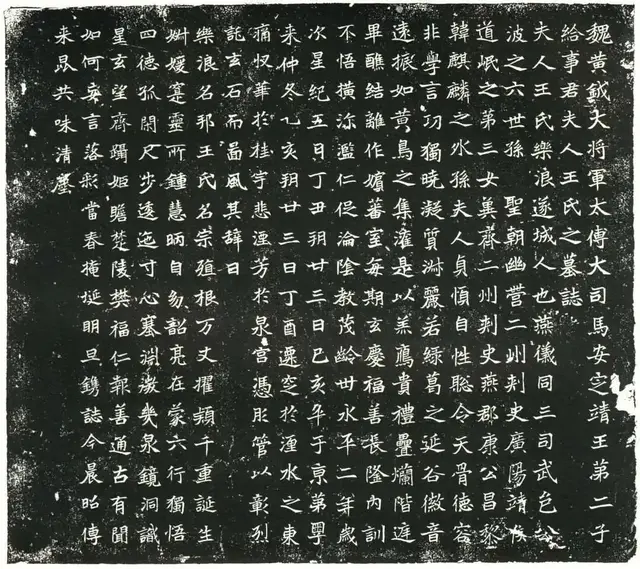 魏黄鉞大將軍太傅大司馬安定靖王第二子
給事君夫人王氏之墓誌
夫人王氏樂浪遂城人也燕儀同三司武邑公
波之六世孫聖朝幽營二州刾史廣陽靖侯
道岷之第三女冀齊二州刾史燕郡康公昌黎
韓麒麟之外孫夫人貞慎自性聡令天骨德容
非學言功獨曉凝質淋麗若綠葛之延谷徽音
遠振如黄鳥之集灌是以羔鴈貴禮疊爛階庭
早醮結離作嬪蕃室每期玄慶福善長隆内訓
不悟橫流濫仁促淪陰教茂齡卌永平二年歲
次星紀五日丁丑朔廿三日己亥卒于京第粤
来仲冬乙亥朔廿三日丁酉遷窆於湹水之東
痛灼華於桂宇悲湮芳於泉宫憑彤管以彰烈
託玄石而啚風其辝曰
樂浪名邦王氏名宗殖根万丈擢穎千重誕生
姌媛寔靈所鍾慧昞自㓜韶亮在蒙六行獨悟
四德孤閑尺步透迤寸心塞淵澈幾泉鏡洞識
星玄望齊躅姫瞻楚陵樊福仁報善通古有聞
如何妄言落彩當春掩埏明旦鐫誌今晨昭傳
来昆共味清塵